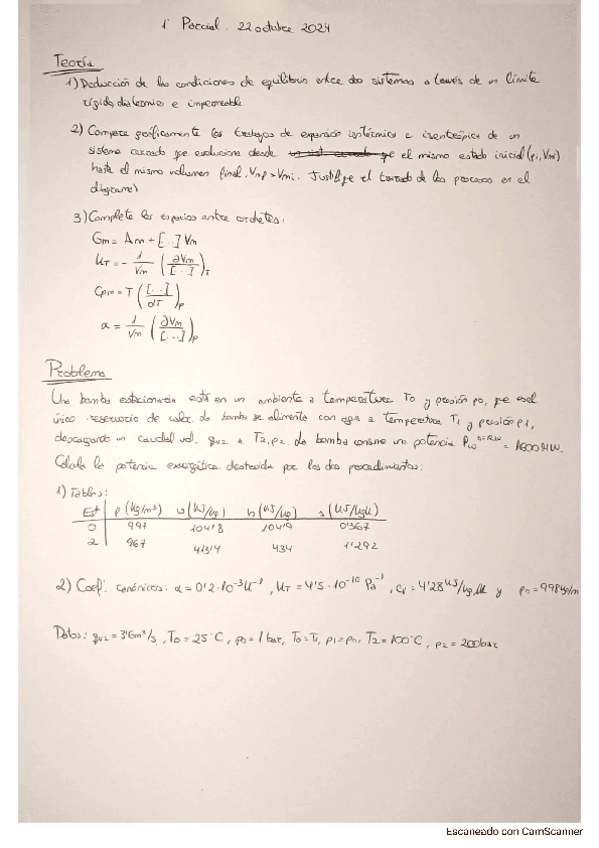 1º Parcial. 22 octubre 2024
Teoría
1) Deducción de las condiciones de equilibrio entre dos sistemas a través de un límite
rígido, diatermico e impermeable
2) Compara gráficamente los trabajos de expansión isotérmica e isentrópica de un
sistema cerrado que evoluciona desde el mismo estado inicial (pi, Vmi)
hasta el mismo volumen final. Vmf > Vmi. Justifique el trazado de los procesos en el
diagrama)
3) Complete los espacios entre corchetes.
Gm = Am + [...] Vm
κT = - 1/Vm (∂Vm/[...])T
Cpm = T ([...]/∂T)p
α = 1/Vm (∂Vm/[...])p
Problema
Una bomba estacionaria está en un ambiente a temperatura T0 y presión p0, que es el
único reservorio de calor. La bomba se alimenta con agua a temperatura T1 y presión p1,
descargando un caudal vol. qv2 a T2, p2. La bomba consume una potencia = 1600 MW.
Calcula la potencia exergética destruida por los dos procedimientos:
1) Tablas:
Est ρ (kg/m³) u (kJ/kg) h (kJ/kg) s (kJ/kgK)
0 997 104'8 104'9 0'367
2 967 413'4 434 1'292
2) Coef. canónicos: α = 0'2·10⁻³ K⁻¹, κT = 4'5·10⁻¹⁰ Pa⁻¹, cp = 4'28 kJ/kg.K y ρ0 = 998 kg/m
Datos: qv2 = 3'6 m³/s, T0 = 25°C, p0 = 1 bar, T0 = T1, p1 = p0, T2 = 100°C, p2 = 200 bar
Escaneado con CamScanner